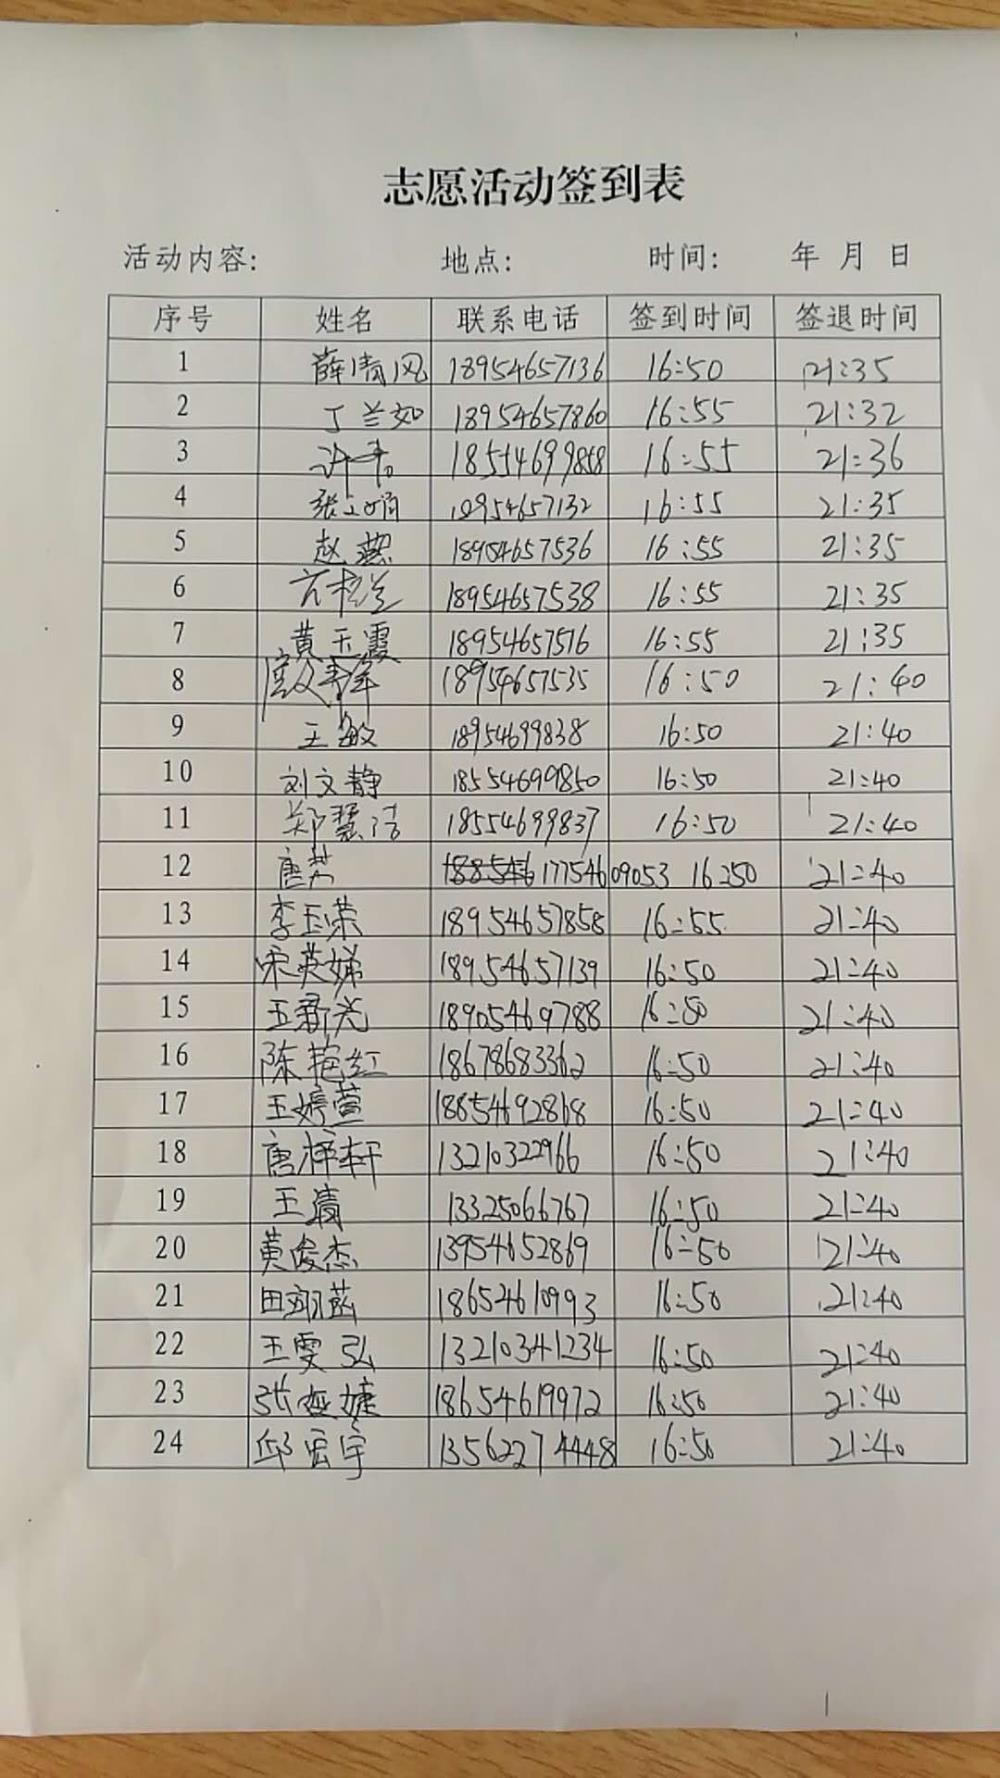 志愿活动签到表
活动内容: 地点: 时间: 年 月 日
序号 姓名 联系电话 签到时间 签退时间
1 薛清风 18954657136 16:50 21:35
2 丁兰如 18954657860 16:55 21:32
3 16:55 21:36
4 18954657132 16:55 21:35
5 赵燕 18954657536 16:55 21:35
6 18954657538 16:55 21:35
7 黄玉霞 18954657516 16:55 21:35
8 18954657535 16:50 21:40
9 王敏 18954699838 16:50 21:40
10 刘文静 18554699850 16:50 21:40
11 郑慧洁 18554699837 16:50 21:40
12 唐芳 17754609053 16:50 21:40
13 李玉荣 18954657858 16:55 21:40
14 宋英娣 18954657139 16:50 21:40
15 18905469788 16:50 21:40
16 陈艳红 18678683362 16:50 21:40
17 王婷萱 18854692868 16:50 21:40
18 唐梓轩 13210322966 16:50 21:40
19 王清 13325066767 16:50 21:40
20 黄俊杰 13954652869 16:50 21:40
21 田翊菡 18652610993 16:50 21:40
22 王雯弘 13210341234 16:50 21:40
23 18654619972 16:50 21:40
24 邱宏宇 13562274448 16:50 21:40